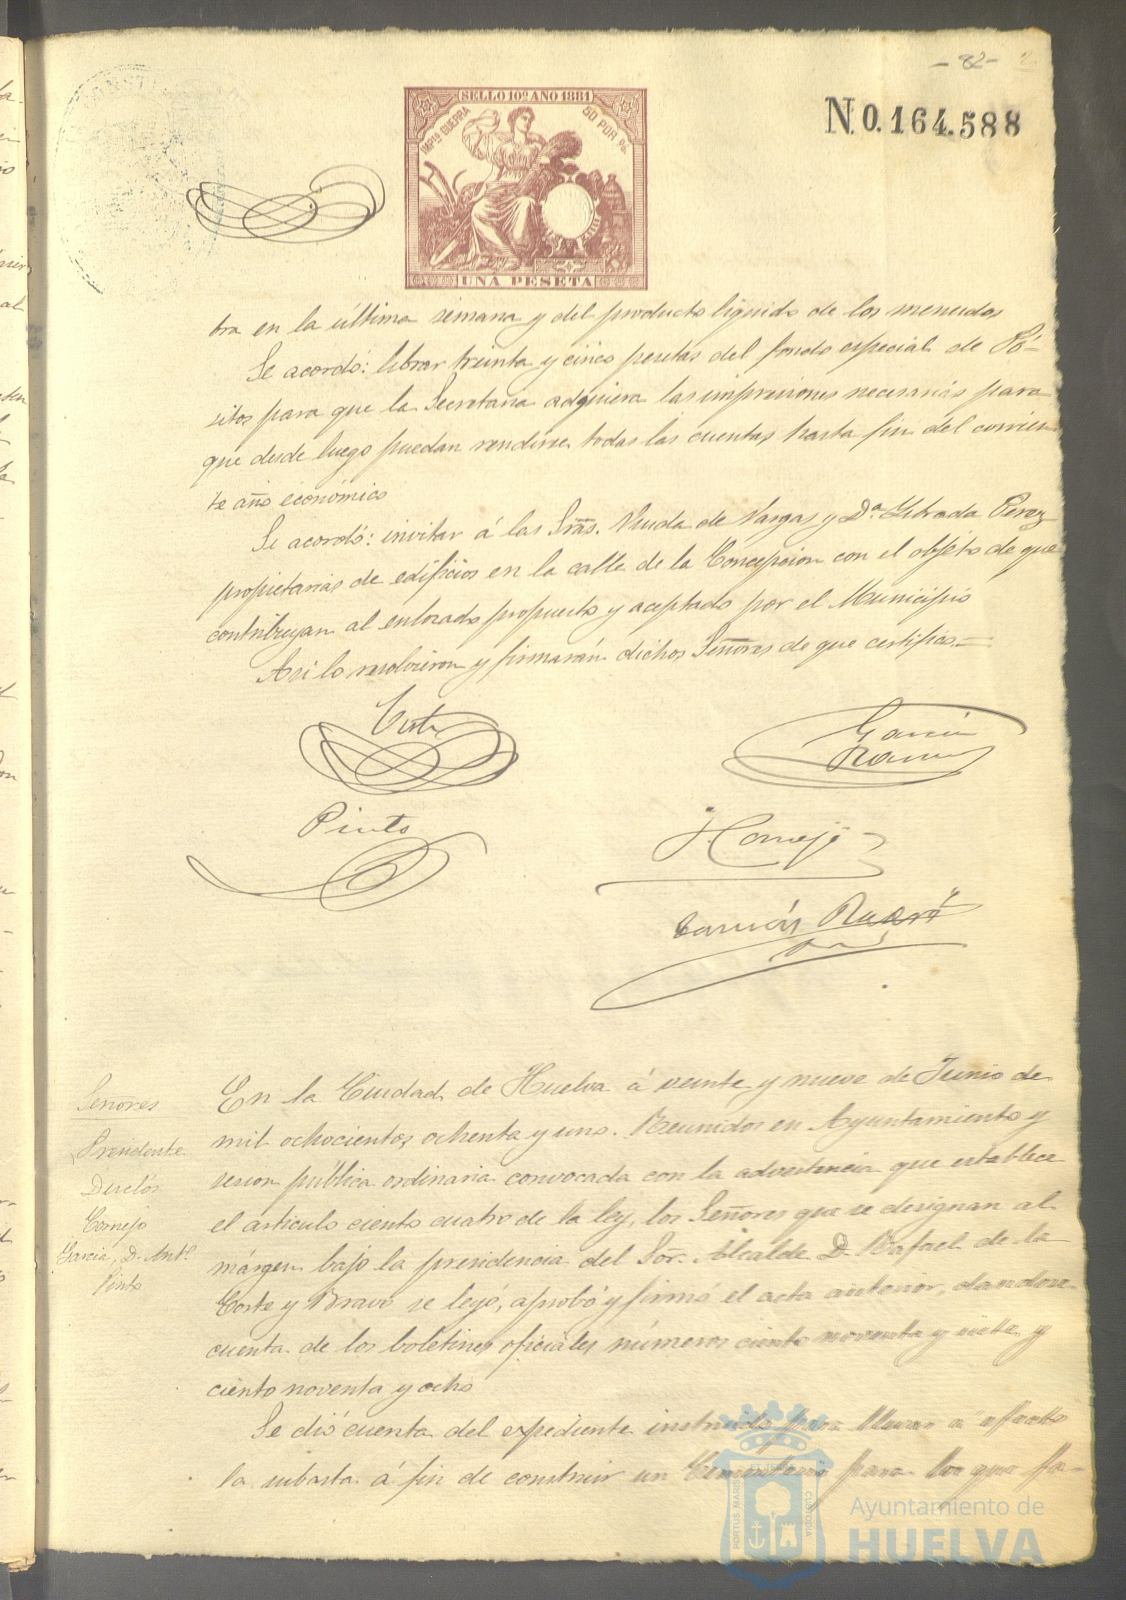 - 82 -
SELLO 10º AÑO 1881
IMPTO GUERRA
50 POR %
UNA PESETA
N.0.164.588
tra en la última semana y del producto líquido de los menudos
Se acordó: librar treinta y cinco pesetas del fondo especial de Pó-
sitos para que la Secretaria adquiera las impresiones necesarias para
que desde luego puedan rendirse todas las cuentas hasta fin del corrien-
te año económico
Se acordó: invitar á las Sras. Viuda de Vargas y Dª Librada Perez
propietarias de edificios en la calle de la Concepcion con el objeto de que
contribuyan al enlosado propuesto y aceptado por el Municipio
Asi lo resolvieron y firmarán dichos Señores de que certifico.=
Corte
Garcia
Ramos
Pinto
Cornejo
En la Ciudad de Huelva á veinte y nueve de Junio de
mil ochocientos ochenta y uno. Reunidos en Ayuntamiento y
sesion pública ordinaria convocada con la advertencia que establece
el articulo ciento cuatro de la ley, los Señores que se designan al
márgen bajo la presidencia del Sor. Alcalde D. Rafael de la
Corte y Bravo se leyó, aprobó y firmó el acta anterior, dandose
cuenta de los boletines oficiales números ciento noventa y siete y
ciento noventa y ocho
Se dió cuenta del expediente instruido para llevar á efecto
la subasta á fin de construir un Cementerio para los que fa-
Señores
Presidente
Duclós
Cornejo
Garcia, D. Antº
Pinto
PORTUS MARIS
CUSTODIA
Ayuntamiento de
HUELVA